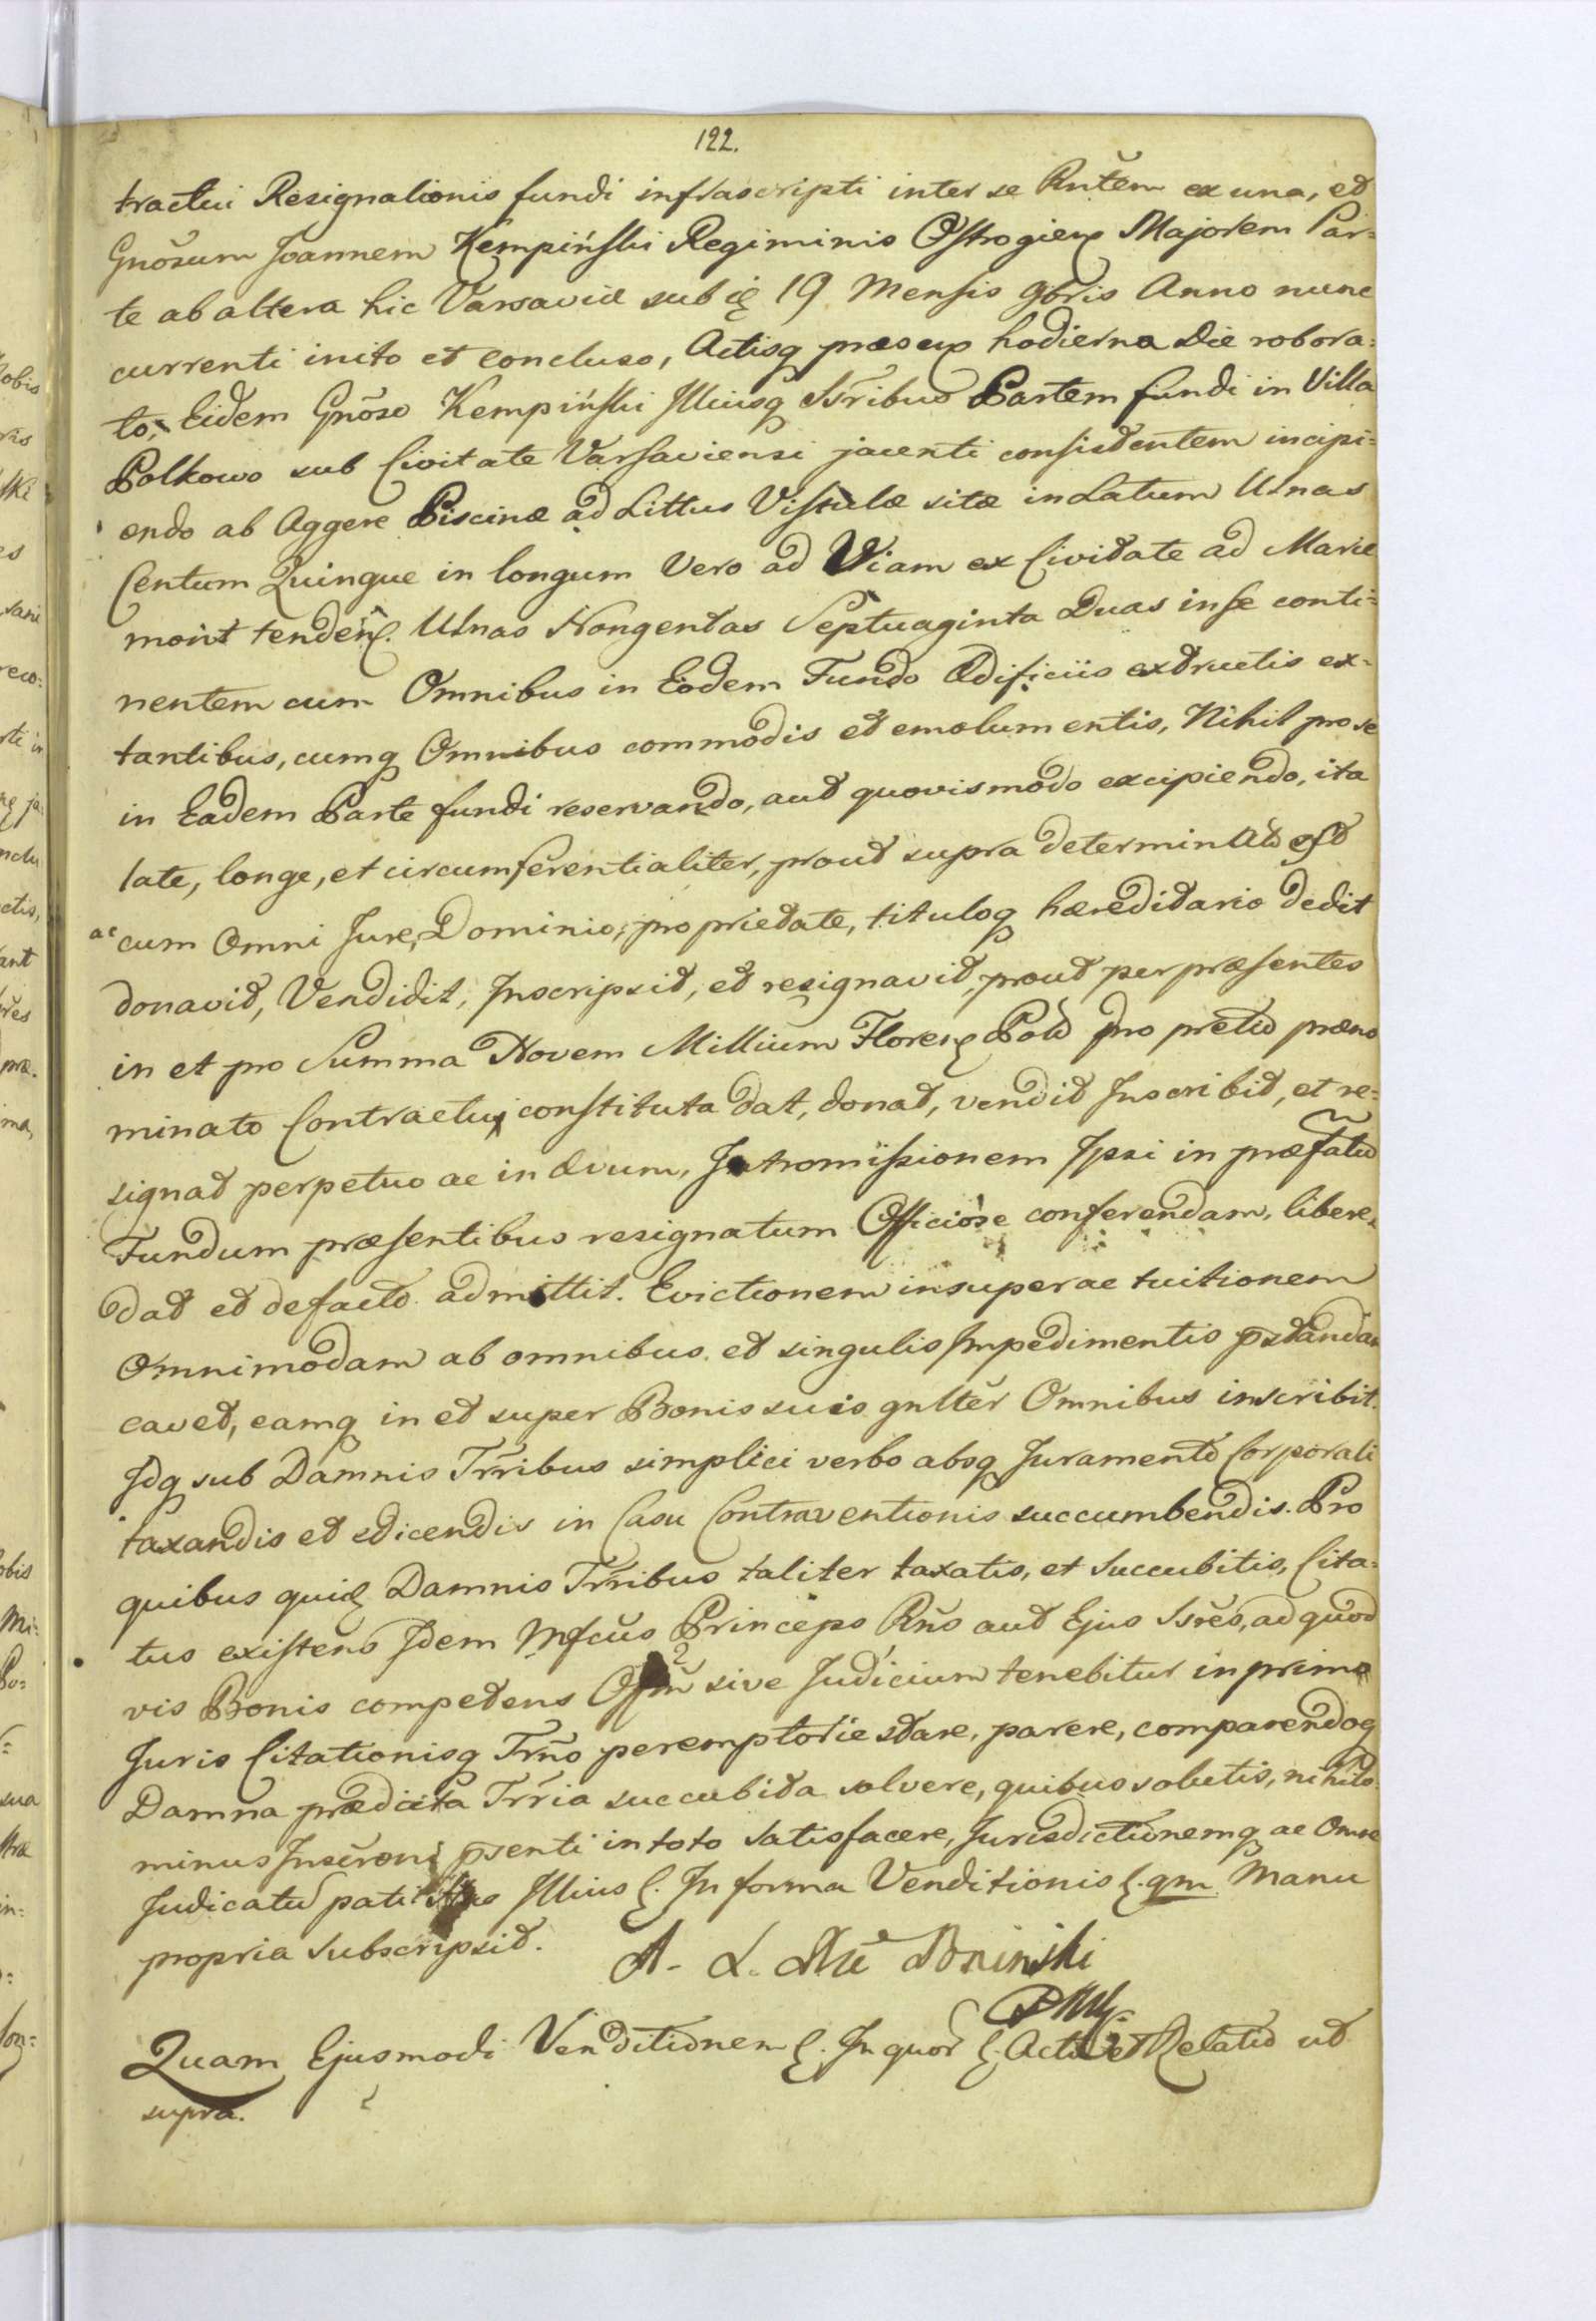 122.
tractui Resignationis fundi infrascripti inter se Rñtem ex una, et
Gnõsum Joannem Kempiński Regiminis Ostrogien Majorem Par=
te ab altera hic Varsaviæ sub 19 Mensis 9bris Anno nunc
currenti inito et concluso, Actisq præsen hodierna Die robora=
to, Eidem Gnõso Kempiński Illiusq Ssribus Partem fundi in Villa
Polkowo sub Civitate Varsaviensi jacenti consistentem incipi=
endo ab Aggere Piscinæ ad Littus Vistulæ sitæ in Latum Ulnas
Centum Quinque in longum Vero ad Viam ex Civitate ad Marie
mont tenden. Ulnas Nongentas Septuaginta Duas in se conti=
nentem cum Omnibus in Eodem Fundo Ædificiis extructis ex=
tantibus, cumq Omnibus commodis et emolumentis, Nihil pro se
in Eadem Parte fundi reservando, aut quovismodo excipiendo, ita
late, longe, et circumferentialiter, prout supra determinat est
ac cum Omni Jure, Dominio, proprietate, tituloq hæreditario dedit
donavit, Vendidit, Inscripsit, et resignavit, prout per præsentes
in et pro Summa Novem Millium Floren Pold pro pretio præno
minato Contractui constituta dat, donat, vendit Inscribit, et re=
signat perpetuo ac in ævum, Intromissionem Ipsi in præfatũ
Fundum præsentibus resignatum Officiose conferendam, libere
dat et defacto admittit. Evictionem insuper ac tuitionem
Omnimodam ab omnibus et singulis Impedimentis pstandam
cavet, eamq in et super Bonis suis gnlter Omnibus inscribit.
Idq sub Damnis Trribus simplici verbo absq Juramento Corporali
taxandis et edicendis in Casu Contraventionis succumbendis. Pro
quibus quid Damnis Trribus taliter taxatis, et Succubitis, Cita=
tus existens Idem Mfcũs Princeps Rñs aut Ejus Ssrẽs, ad quod
vis Bonis competens Offm sive Judicium tenebitur in primo
Juris Citationisq Trño peremptorie stare, parere, comparendoq
Damna prædicta Trria succubita solvere, quibus solutis, nihilo
minus Inscroni psenti in toto Satisfacere, Jurisdictionemq ac Omne
Judicatũ pati Illius In forma Venditionis qm Manu
propria Subscripsit. A. L. Poniński
Quam Ejusmodi Venditionem In quor Acta et Relatio ut
supra.